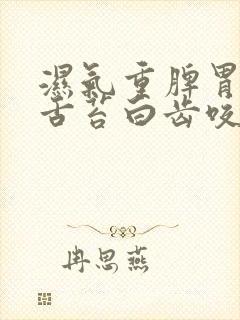 濕氣重脾胃
舌苔白齿咬
冉思燕